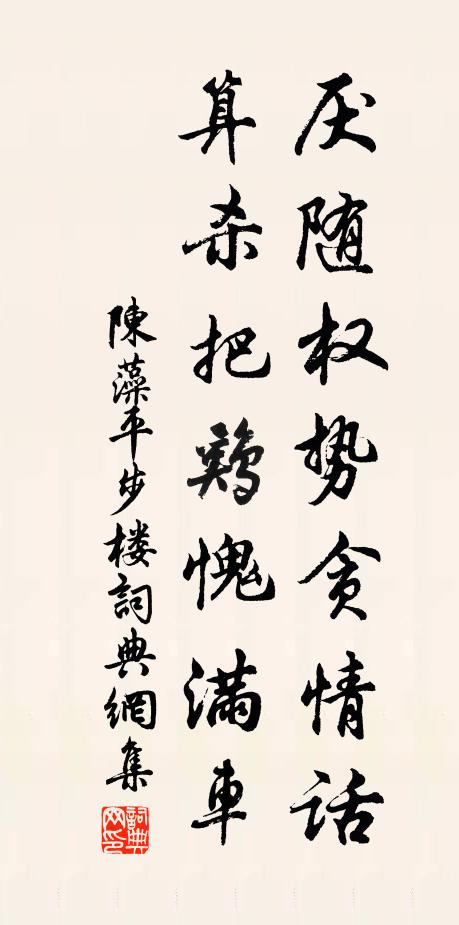 厌随权势贪情话
算杀把鸡愧满車
陳藻平步楼詞典網集
詞典网印